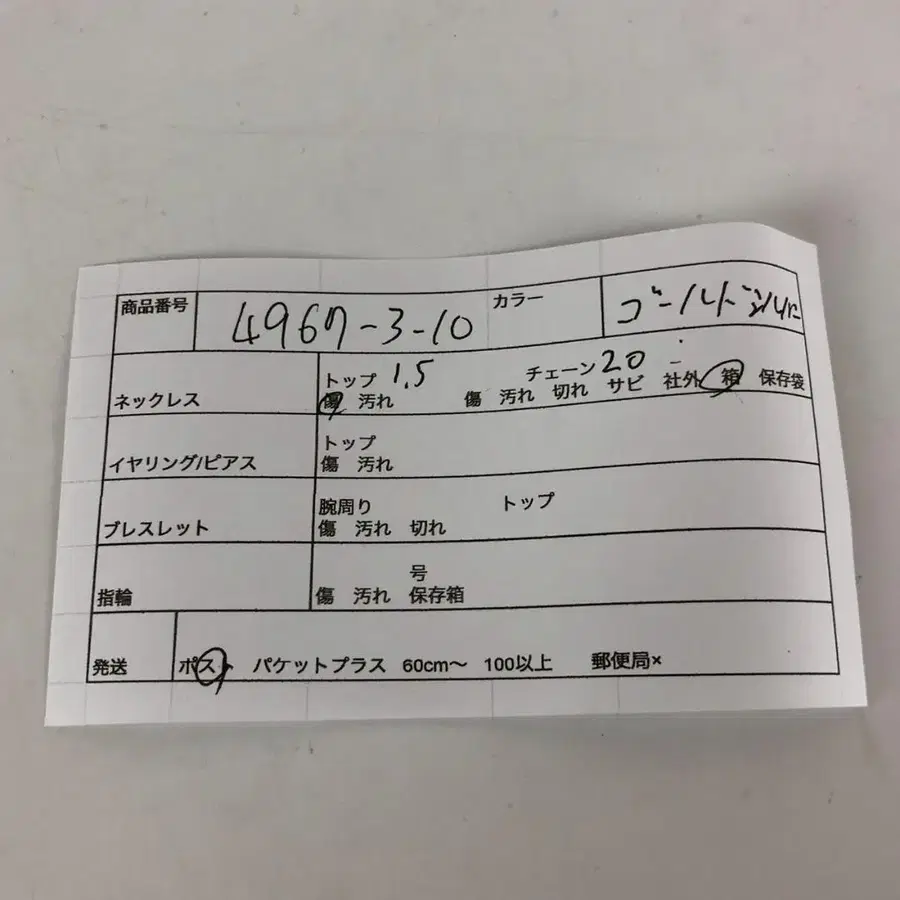 商品番号 4967-3-10 カラー ゴールド シルバ
ネックレス トップ 1.5 チェーン 20
傷 汚れ 傷 汚れ 切れ サビ 社外 箱 保存袋
イヤリング/ピアス トップ
傷 汚れ
ブレスレット 腕周り トップ
傷 汚れ 切れ
指輪 号
傷 汚れ 保存箱
発送 ポスト パケットプラス 60cm〜 100以上 郵便局×